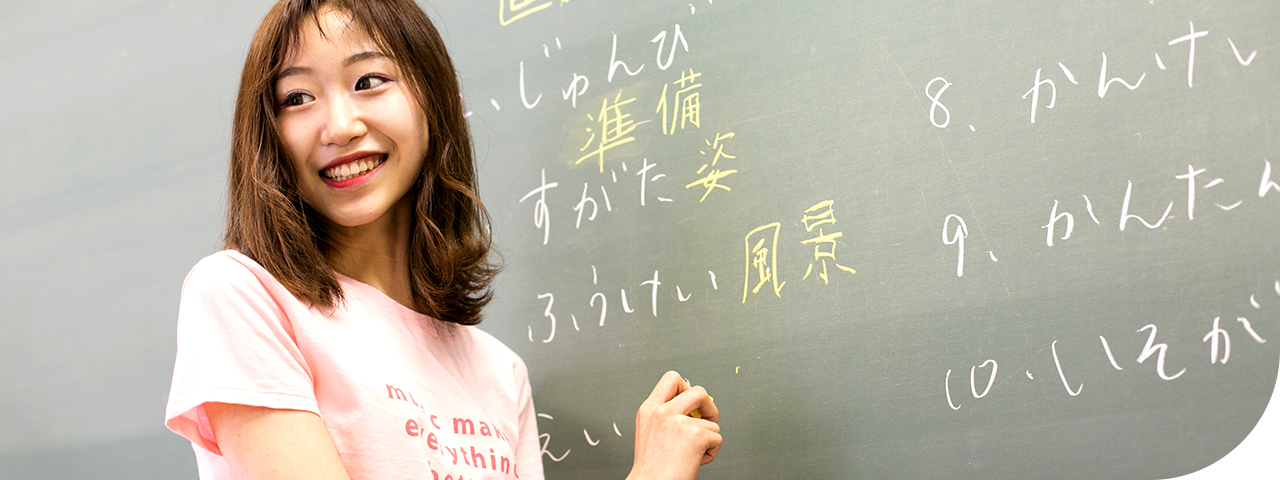 じゅんび 準備
すがた 姿
ふうけい 風景
えい
8、かんけい
9、かんた
10、いそが
music mak
everything